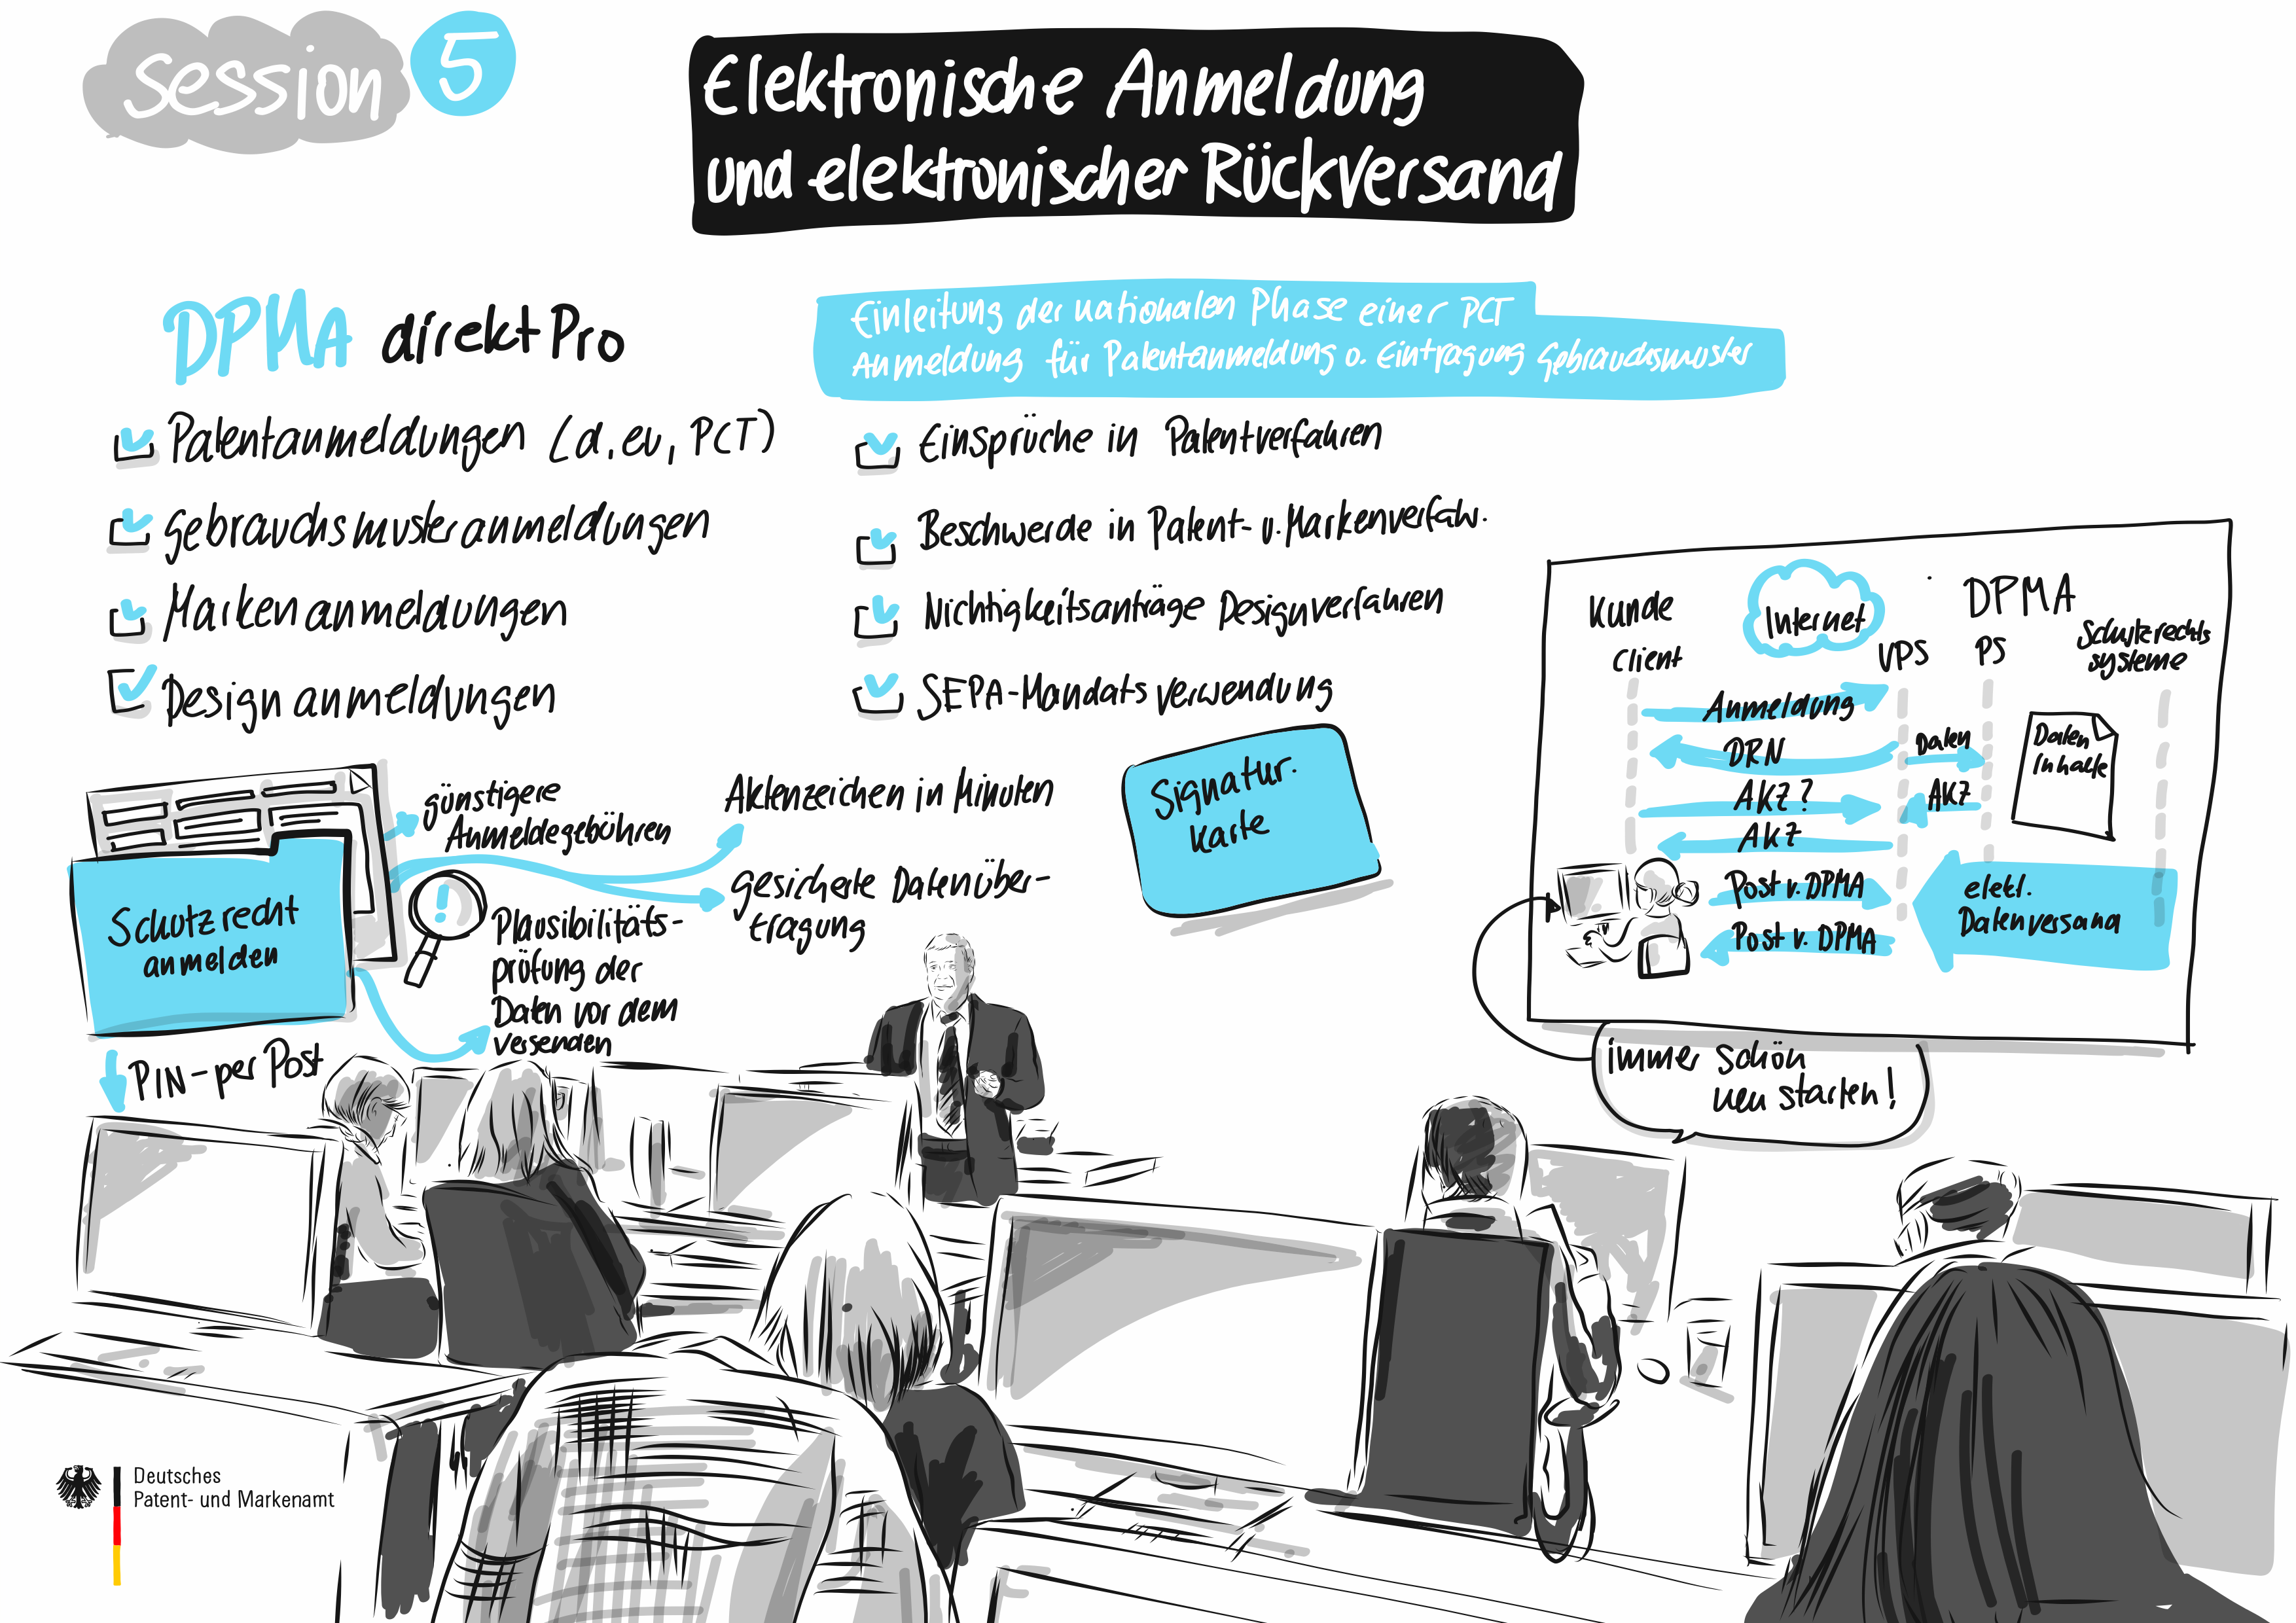 Session 5
Elektronische Anmeldung
und elektronischer Rückversand
DPMA direkt Pro
Patentanmeldungen (d, eu, PCT)
Gebrauchsmusteranmeldungen
Markenanmeldungen
Designanmeldungen
Einleitung der nationalen Phase einer PCT
Anmeldung für Patentanmeldung o. Eintragung Gebrauchsmuster
Einsprüche in Patentverfahren
Beschwerde in Patent- u. Markenverfahr.
Nichtigkeitsanträge Designverfahren
SEPA-Mandatsverwendung
Schutzrecht
anmelden
günstigere
Anmeldegebühren
Aktenzeichen in Minuten
gesicherte Datenüber-
tragung
!
Plausibilitäts-
prüfung der
Daten vor dem
Versenden
PIN-per Post
Signatur.
karte
Kunde
Client
Internet
DPMA
VPS
PS
Schutzrechts
systeme
Anmeldung
DRN
Daten
AKZ?
AKZ
AKZ
Daten
Inhalte
Post v. DPMA
Post v. DPMA
elekt.
Datenversand
immer schön
neu starten!
Deutsches
Patent- und Markenamt